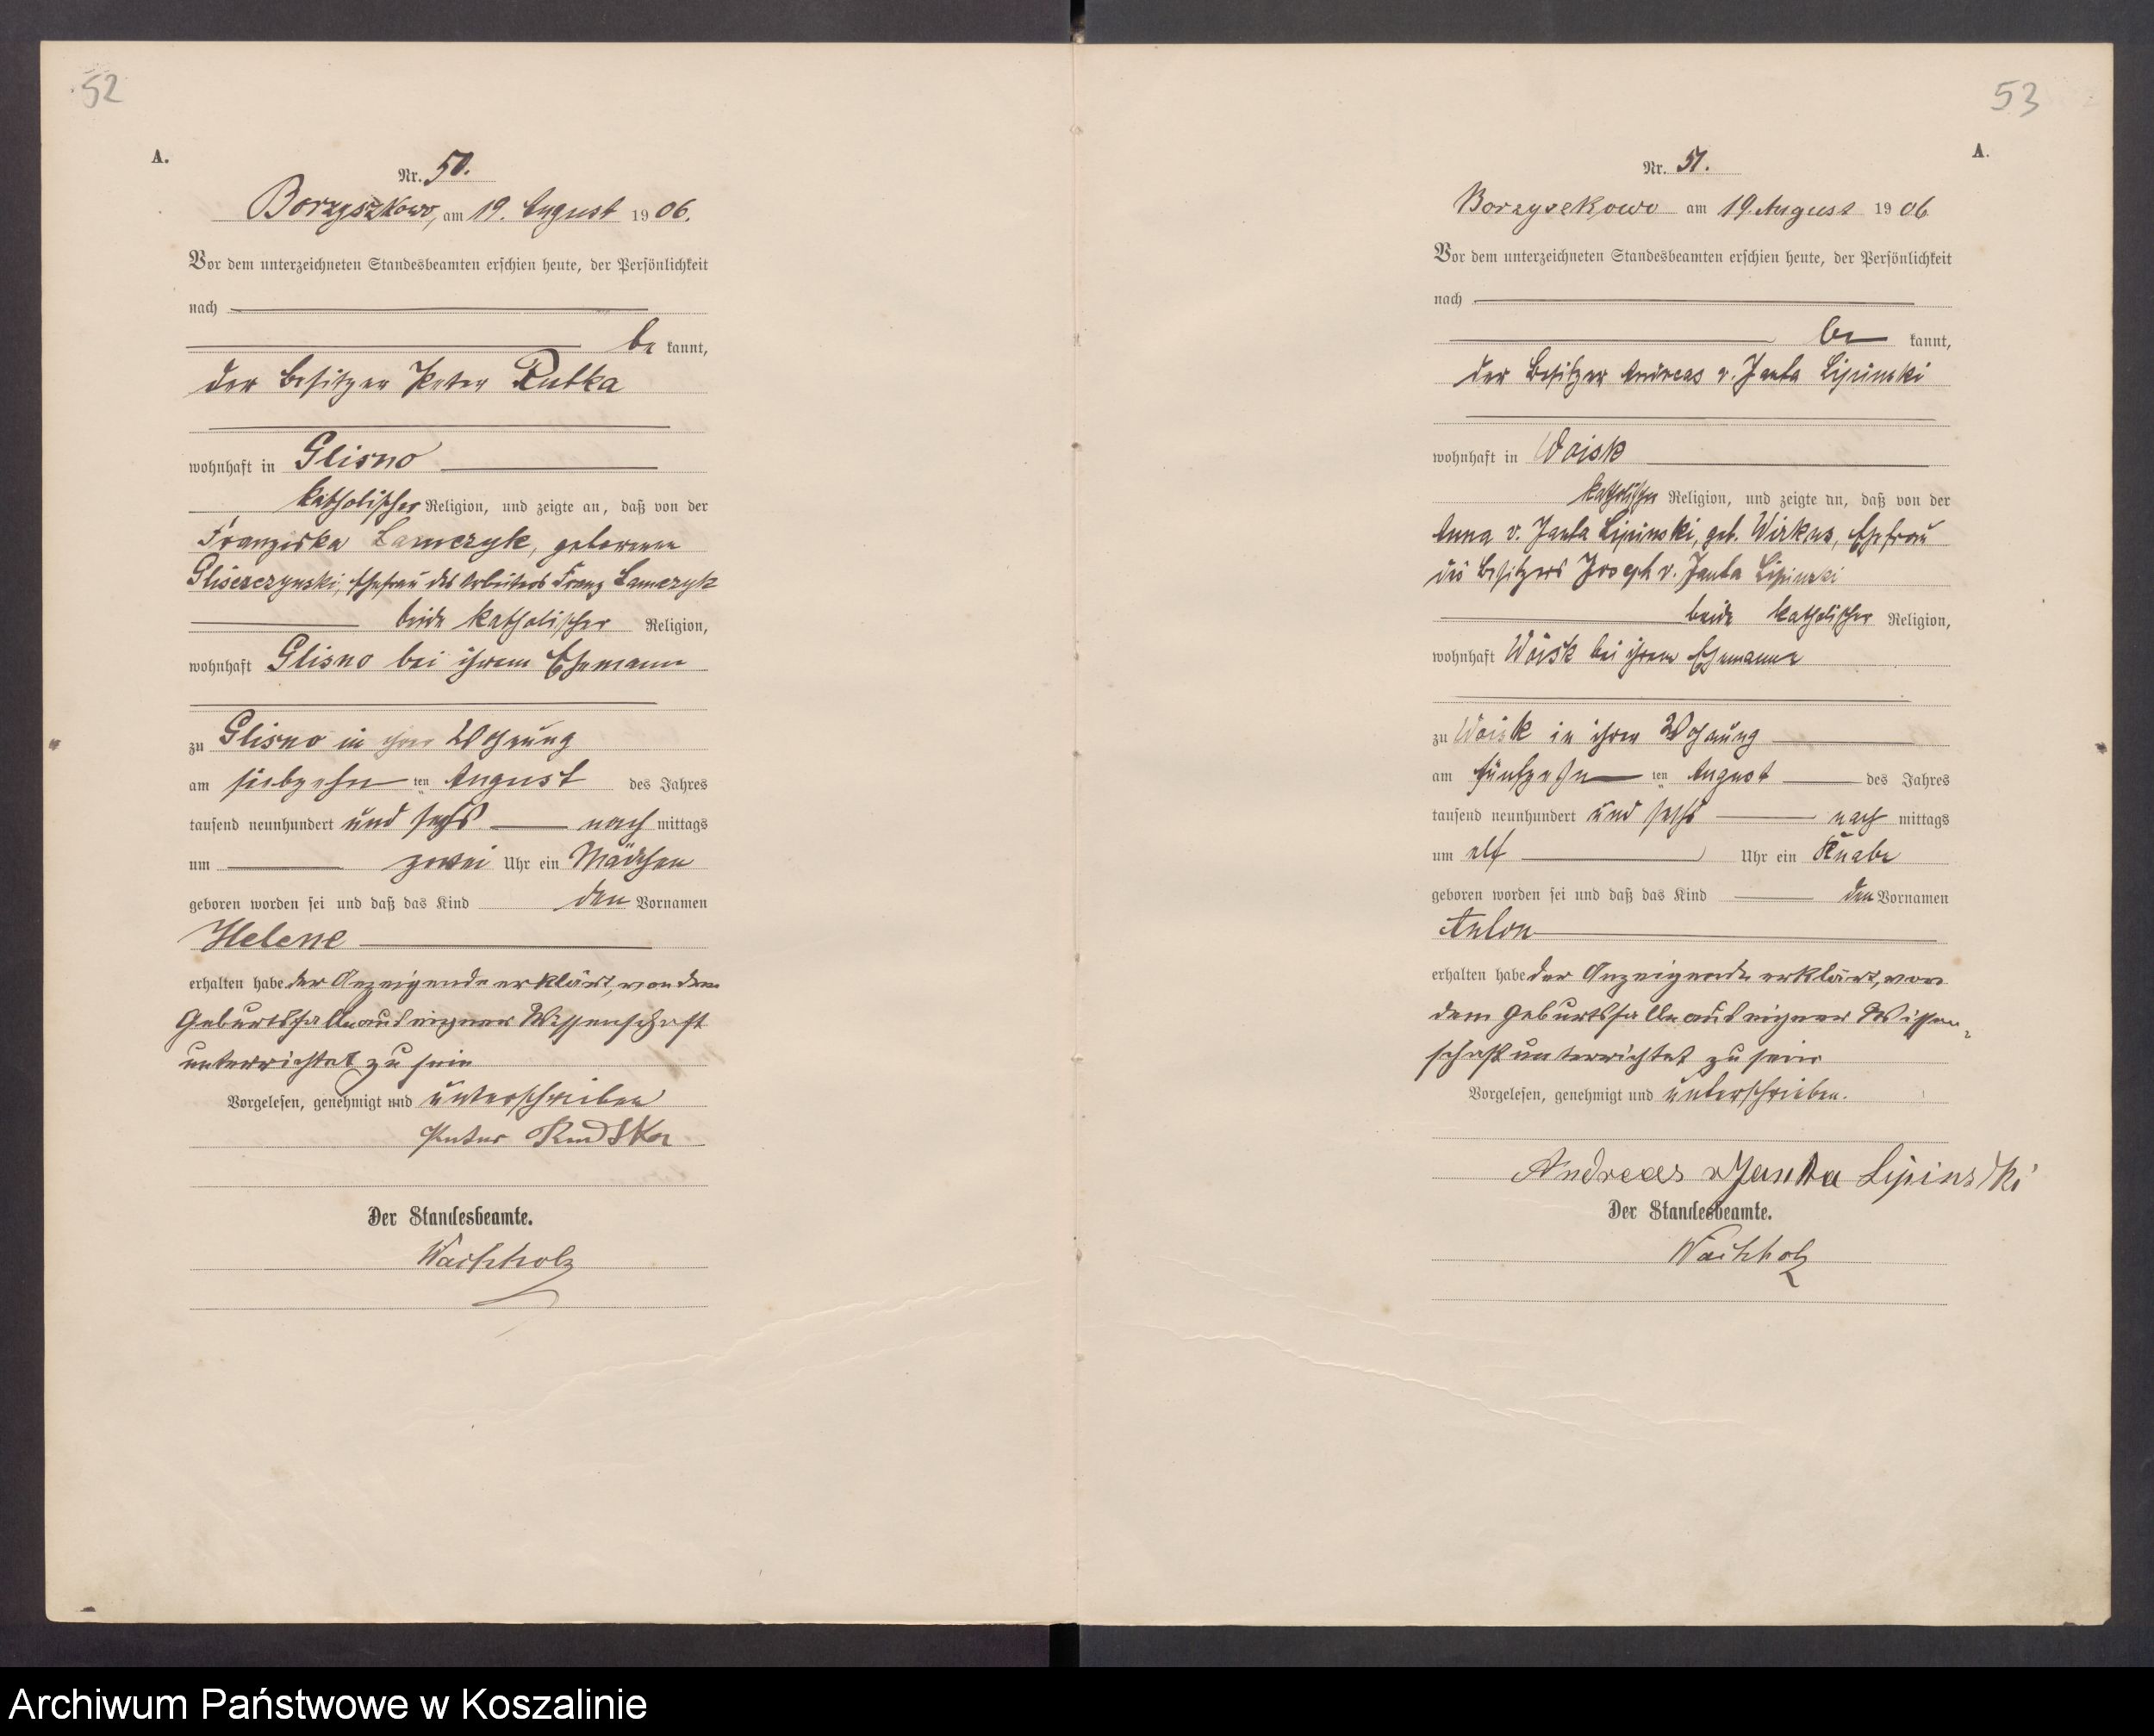 52
A.
Nr. 50.
Borzyszkowo, am 19. August 1906.
Vor dem unterzeichneten Standesbeamten erschien heute, der Persönlichkeit
nach
be kannt,
der Besitzer Peter Rutka
wohnhaft in Glisno
katholischer Religion, und zeigte an, daß von der
Franziska Lamczyk, geborenen
Glisczczynski, Ehefrau des Arbeiters Franz Lamczyk
beide katholischer Religion,
wohnhaft Glisno bei ihrem Ehemann
zu Glisno in ihrer Wohnung
am siebzehn ten August des Jahres
tausend neunhundert und sechs nach mittags
um zwei Uhr ein Mädchen
geboren worden sei und daß das Kind den Vornamen
Helene
erhalten habe der Anzeigende erklärt, von dem
Geburtsfalle aus eigner Wissenschaft
unterrichtet zu sein
Vorgelesen, genehmigt und unterschrieben
Peter
Der Standesbeamte.
Wachholz
53
A.
Nr. 51.
Borzysekowo am 19. August 1906
Vor dem unterzeichneten Standesbeamten erschien heute, der Persönlichkeit
nach
be kannt,
der Besitzer Andreas v. Janta Lipinski
wohnhaft in Woisk
katholischer Religion, und zeigte an, daß von der
Anna v. Janta Lipinski, geb. Wirkus, Ehefrau
des Besitzers Joseph v. Janta Lipinski
beide katholischer Religion,
wohnhaft Woisk bei ihrem Ehemanne
zu Woisk in ihrer Wohnung
am fünfzehn ten August des Jahres
tausend neunhundert und sechs nach mittags
um elf Uhr ein Knabe
geboren worden sei und daß das Kind den Vornamen
Anton
erhalten habe der Anzeigende erklärt, von
dem Geburtsfalle aus eigner Wissen-
schaft unterrichtet zu sein
Vorgelesen, genehmigt und unterschrieben.
Andreas v Janta Lipinski
Der Standesbeamte.
Wachholz
Archiwum Państwowe w Koszalinie